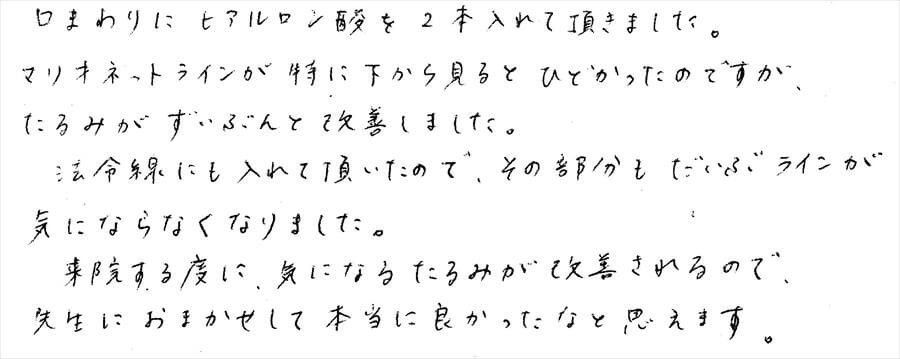 口まわりにヒアルロン酸を2本入れて頂きました。
マリオネットラインが特に下から見るとひどかったのですが、
たるみがずいぶんと改善しました。
法令線にも入れて頂いたので、その部分もだいぶラインが
気にならなくなりました。
来院する度に、気になるたるみが改善されるので、
先生におまかせして本当に良かったなと思えます。